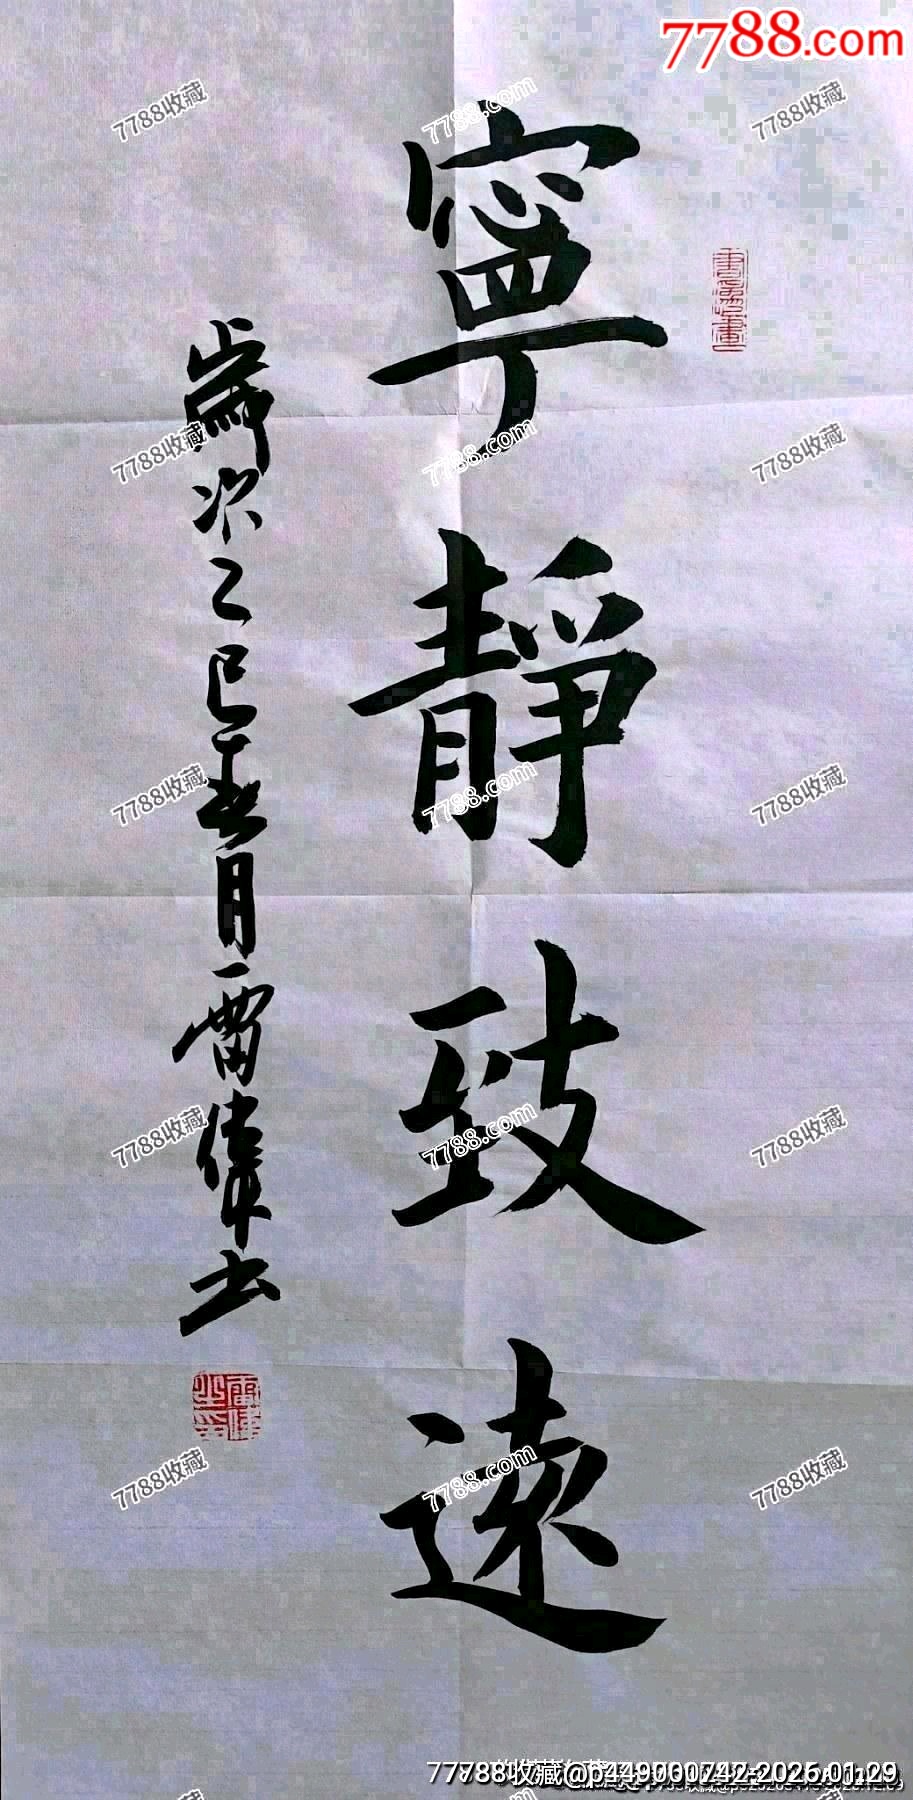 7788.com
寧靜致遠
歲次乙巳春月雷偉書
7788收藏
7788.com
7788收藏
7788收藏
7788.com
7788收藏
7788收藏
7788.com
7788收藏
7788收藏
7788.com
7788收藏
7788收藏
7788.com
7788收藏